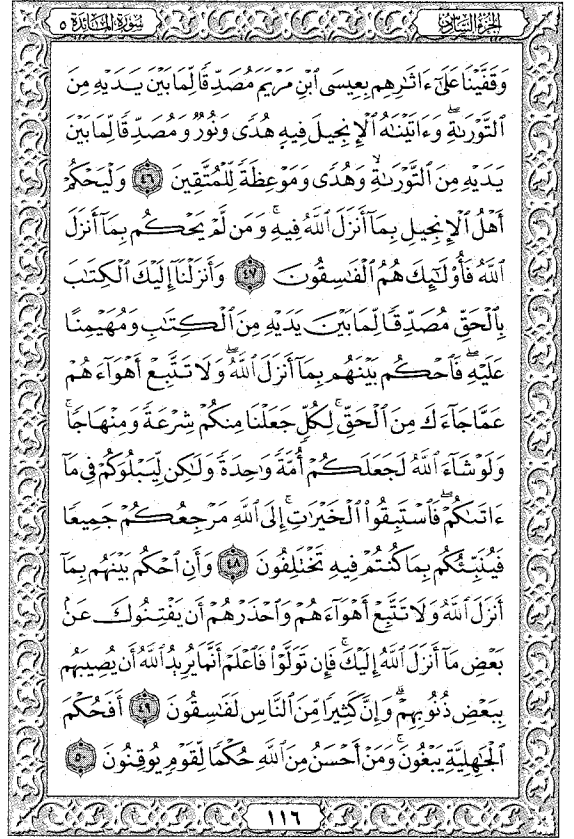 سُورَةُ المَائدَة ٥
الجزء السادس
وَقَفَّيْنَا عَلَىٰٓ ءَاثَٰرِهِم بِعِيسَى ٱبْنِ مَرْيَمَ مُصَدِّقًا لِّمَا بَيْنَ يَدَيْهِ مِنَ
ٱلتَّوْرَىٰةِ ۖ وَءَاتَيْنَٰهُ ٱلْإِنجِيلَ فِيهِ هُدًى وَنُورٌ وَمُصَدِّقًا لِّمَا بَيْنَ
يَدَيْهِ مِنَ ٱلتَّوْرَىٰةِ وَهُدًى وَمَوْعِظَةً لِّلْمُتَّقِينَ ٤٦ وَلْيَحْكُمْ
أَهْلُ ٱلْإِنجِيلِ بِمَآ أَنزَلَ ٱللَّهُ فِيهِ ۚ وَمَن لَّمْ يَحْكُم بِمَآ أَنزَلَ
ٱللَّهُ فَأُو۟لَٰٓئِكَ هُمُ ٱلْفَٰسِقُونَ ٤٧ وَأَنزَلْنَآ إِلَيْكَ ٱلْكِتَٰبَ
بِٱلْحَقِّ مُصَدِّقًا لِّمَا بَيْنَ يَدَيْهِ مِنَ ٱلْكِتَٰبِ وَمُهَيْمِنًا
عَلَيْهِ ۖ فَٱحْكُم بَيْنَهُم بِمَآ أَنزَلَ ٱللَّهُ ۖ وَلَا تَتَّبِعْ أَهْوَآءَهُمْ
عَمَّا جَآءَكَ مِنَ ٱلْحَقِّ ۚ لِكُلٍّ جَعَلْنَا مِنكُمْ شِرْعَةً وَمِنْهَاجًا ۚ
وَلَوْ شَآءَ ٱللَّهُ لَجَعَلَكُمْ أُمَّةً وَٰحِدَةً وَلَٰكِن لِّيَبْلُوَكُمْ فِى مَآ
ءَاتَىٰكُمْ ۖ فَٱسْتَبِقُوا۟ ٱلْخَيْرَٰتِ ۚ إِلَى ٱللَّهِ مَرْجِعُكُمْ جَمِيعًا
فَيُنَبِّئُكُم بِمَا كُنتُمْ فِيهِ تَخْتَلِفُونَ ٤٨ وَأَنِ ٱحْكُم بَيْنَهُم بِمَآ
أَنزَلَ ٱللَّهُ وَلَا تَتَّبِعْ أَهْوَآءَهُمْ وَٱحْذَرْهُمْ أَن يَفْتِنُوكَ عَنۢ
بَعْضِ مَآ أَنزَلَ ٱللَّهُ إِلَيْكَ ۖ فَإِن تَوَلَّوْا۟ فَٱعْلَمْ أَنَّمَا يُرِيدُ ٱللَّهُ أَن يُصِيبَهُم
بِبَعْضِ ذُنُوبِهِمْ ۗ وَإِنَّ كَثِيرًا مِّنَ ٱلنَّاسِ لَفَٰسِقُونَ ٤٩ أَفَحُكْمَ
ٱلْجَٰهِلِيَّةِ يَبْغُونَ ۚ وَمَنْ أَحْسَنُ مِنَ ٱللَّهِ حُكْمًا لِّقَوْمٍ يُوقِنُونَ ٥٠
١١٦